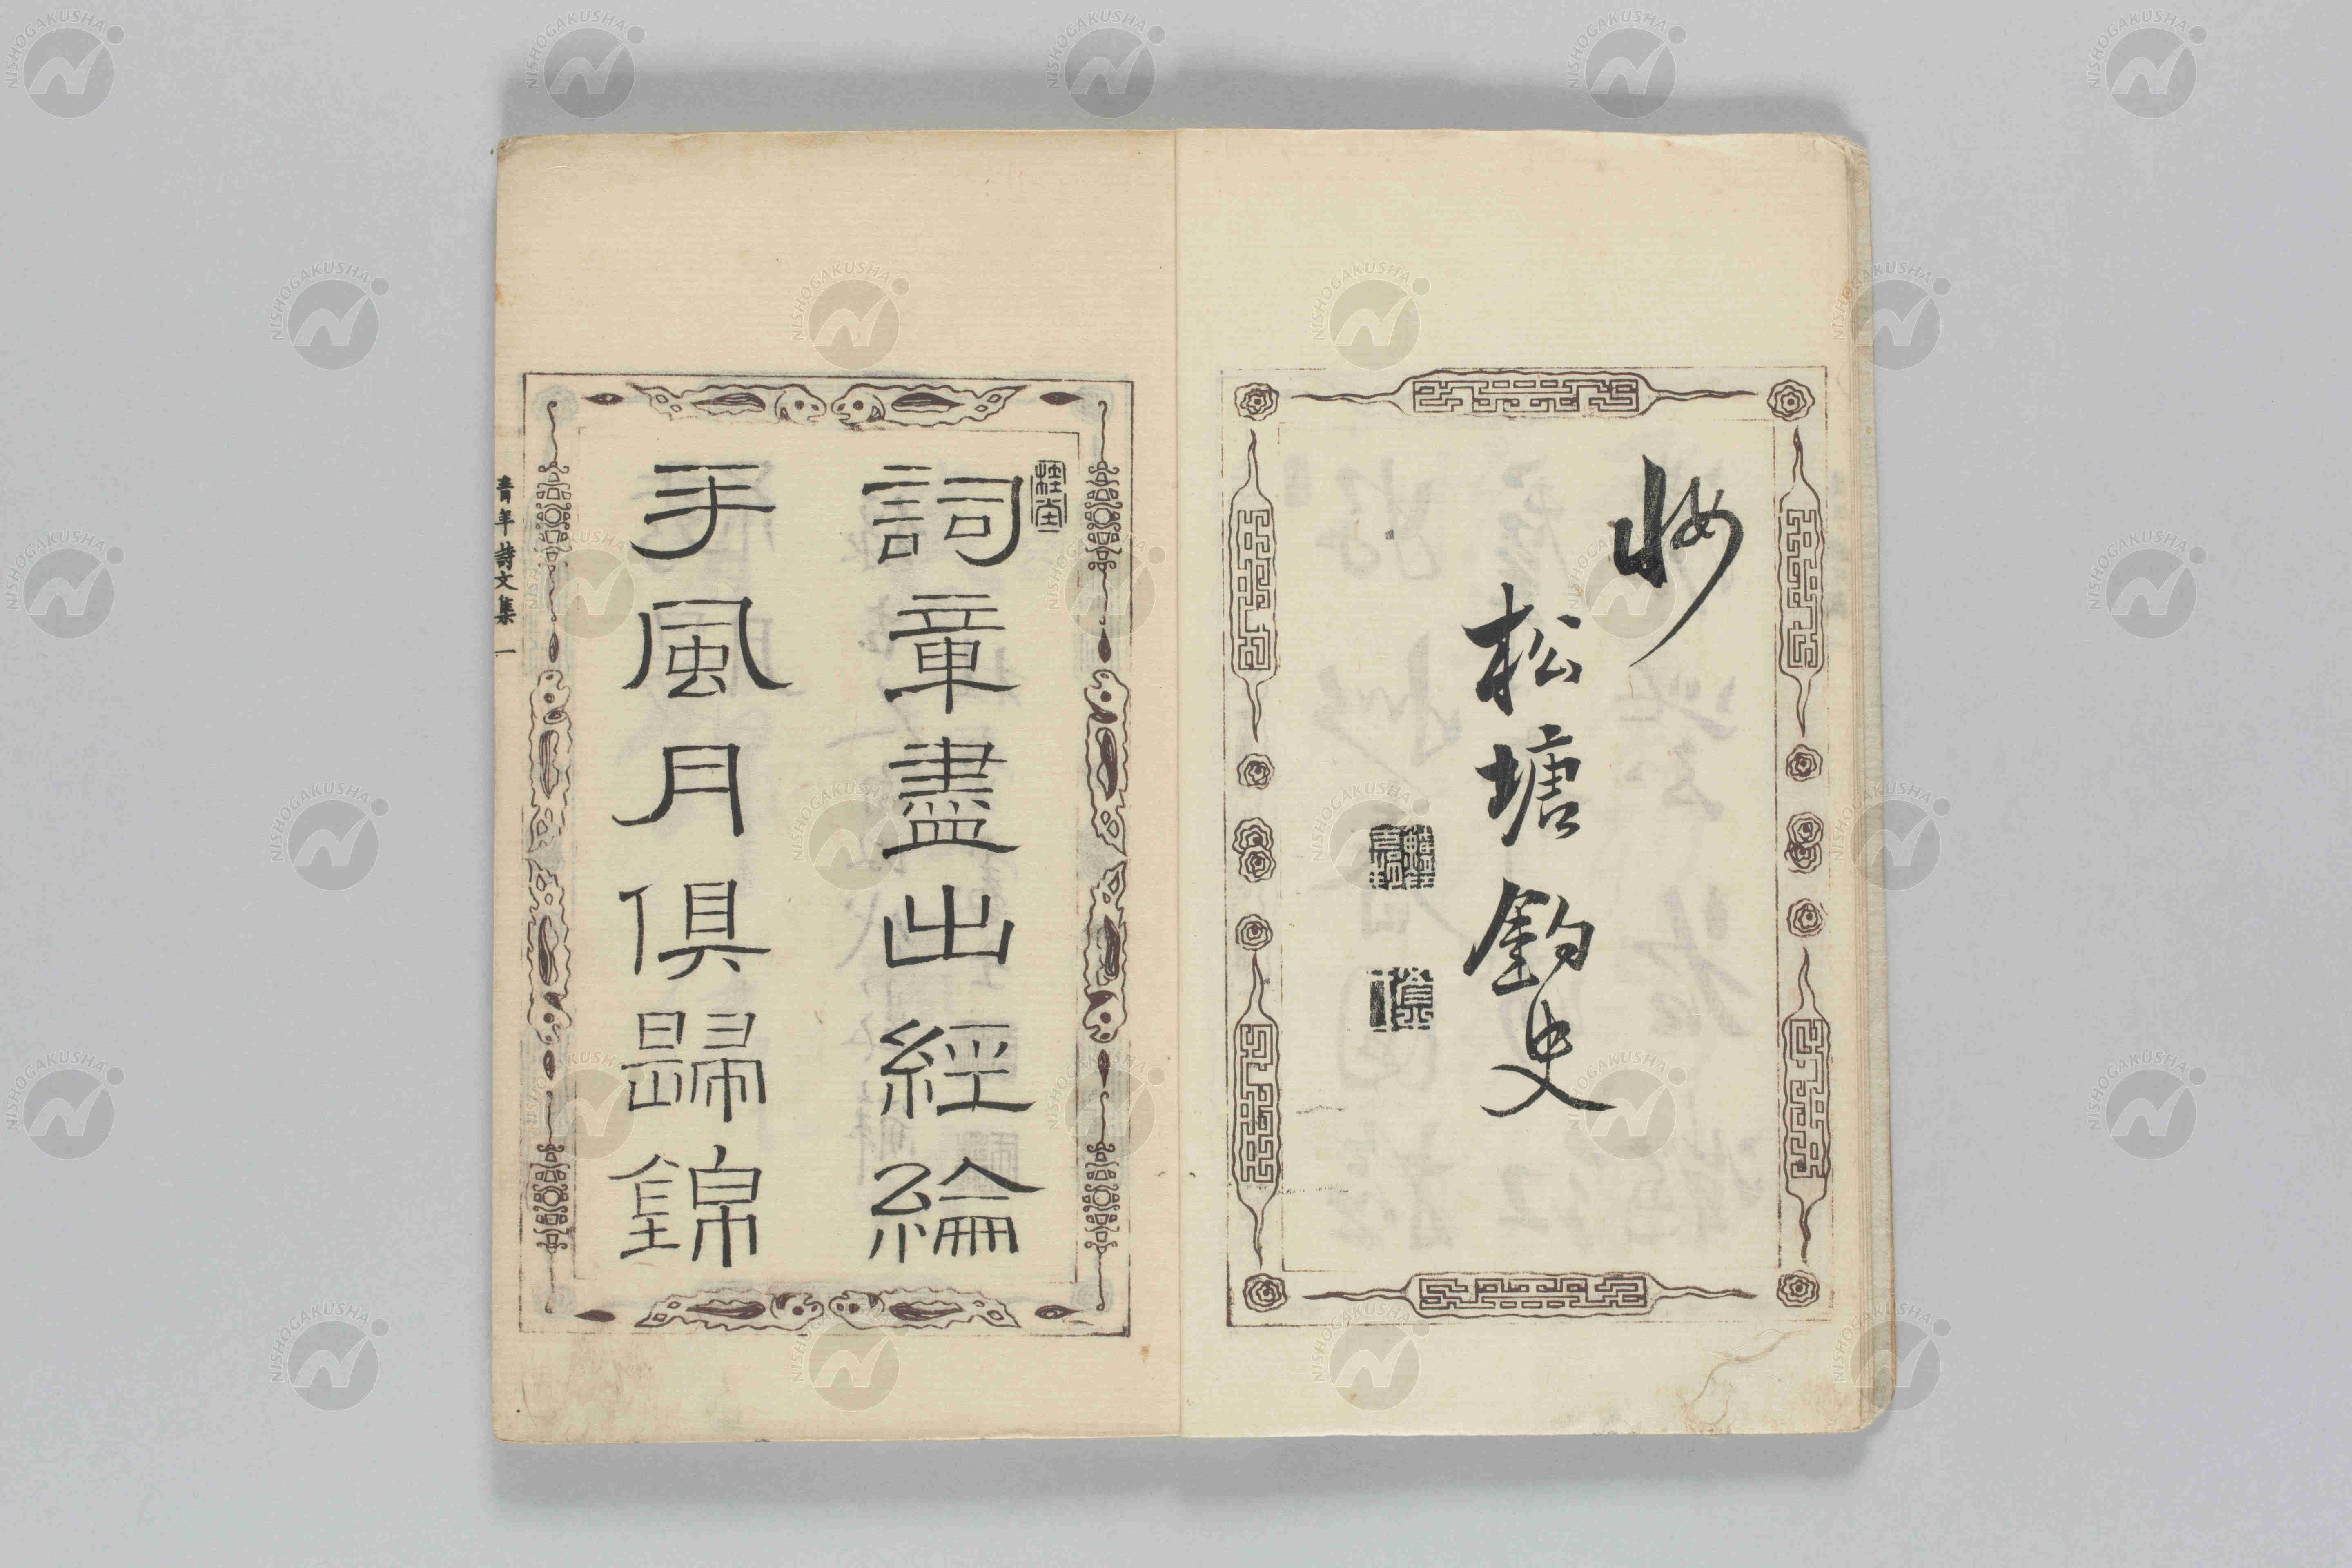 妝
松塘釣史
桂堂
詞章盡出經綸
手風月俱歸錦
青年詩文集 一
NISHOGAKUSHA